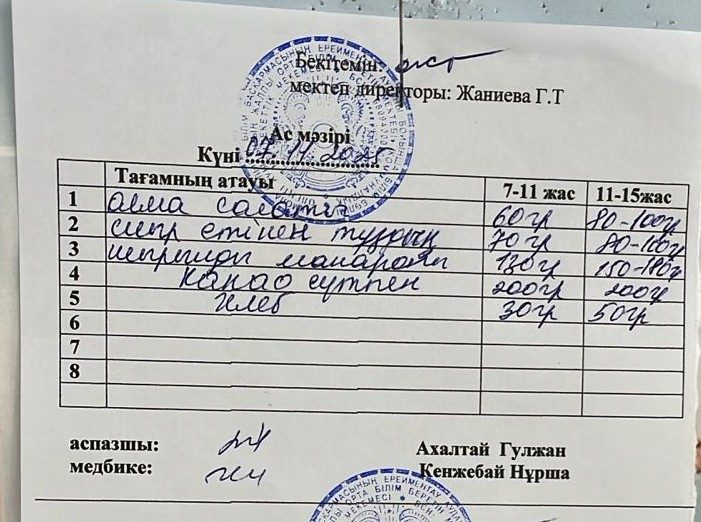 Бекітемін
мектеп директоры: Жаниева Г.Т
Ас мәзірі
Күні 07.11.2025
Тағамның атауы 7-11 жас 11-15жас
1 алма салаты 60гр 80-100гр
2 сиыр етінен тұздық 70гр 80-110гр
3 макароны 130гр 150-180гр
4 Какао сүтпен 200гр 200гр
5 Хлеб 30гр 50гр
6
7
8
аспазшы: Ахалтай Гулжан
медбике: Кенжебай Нұрша